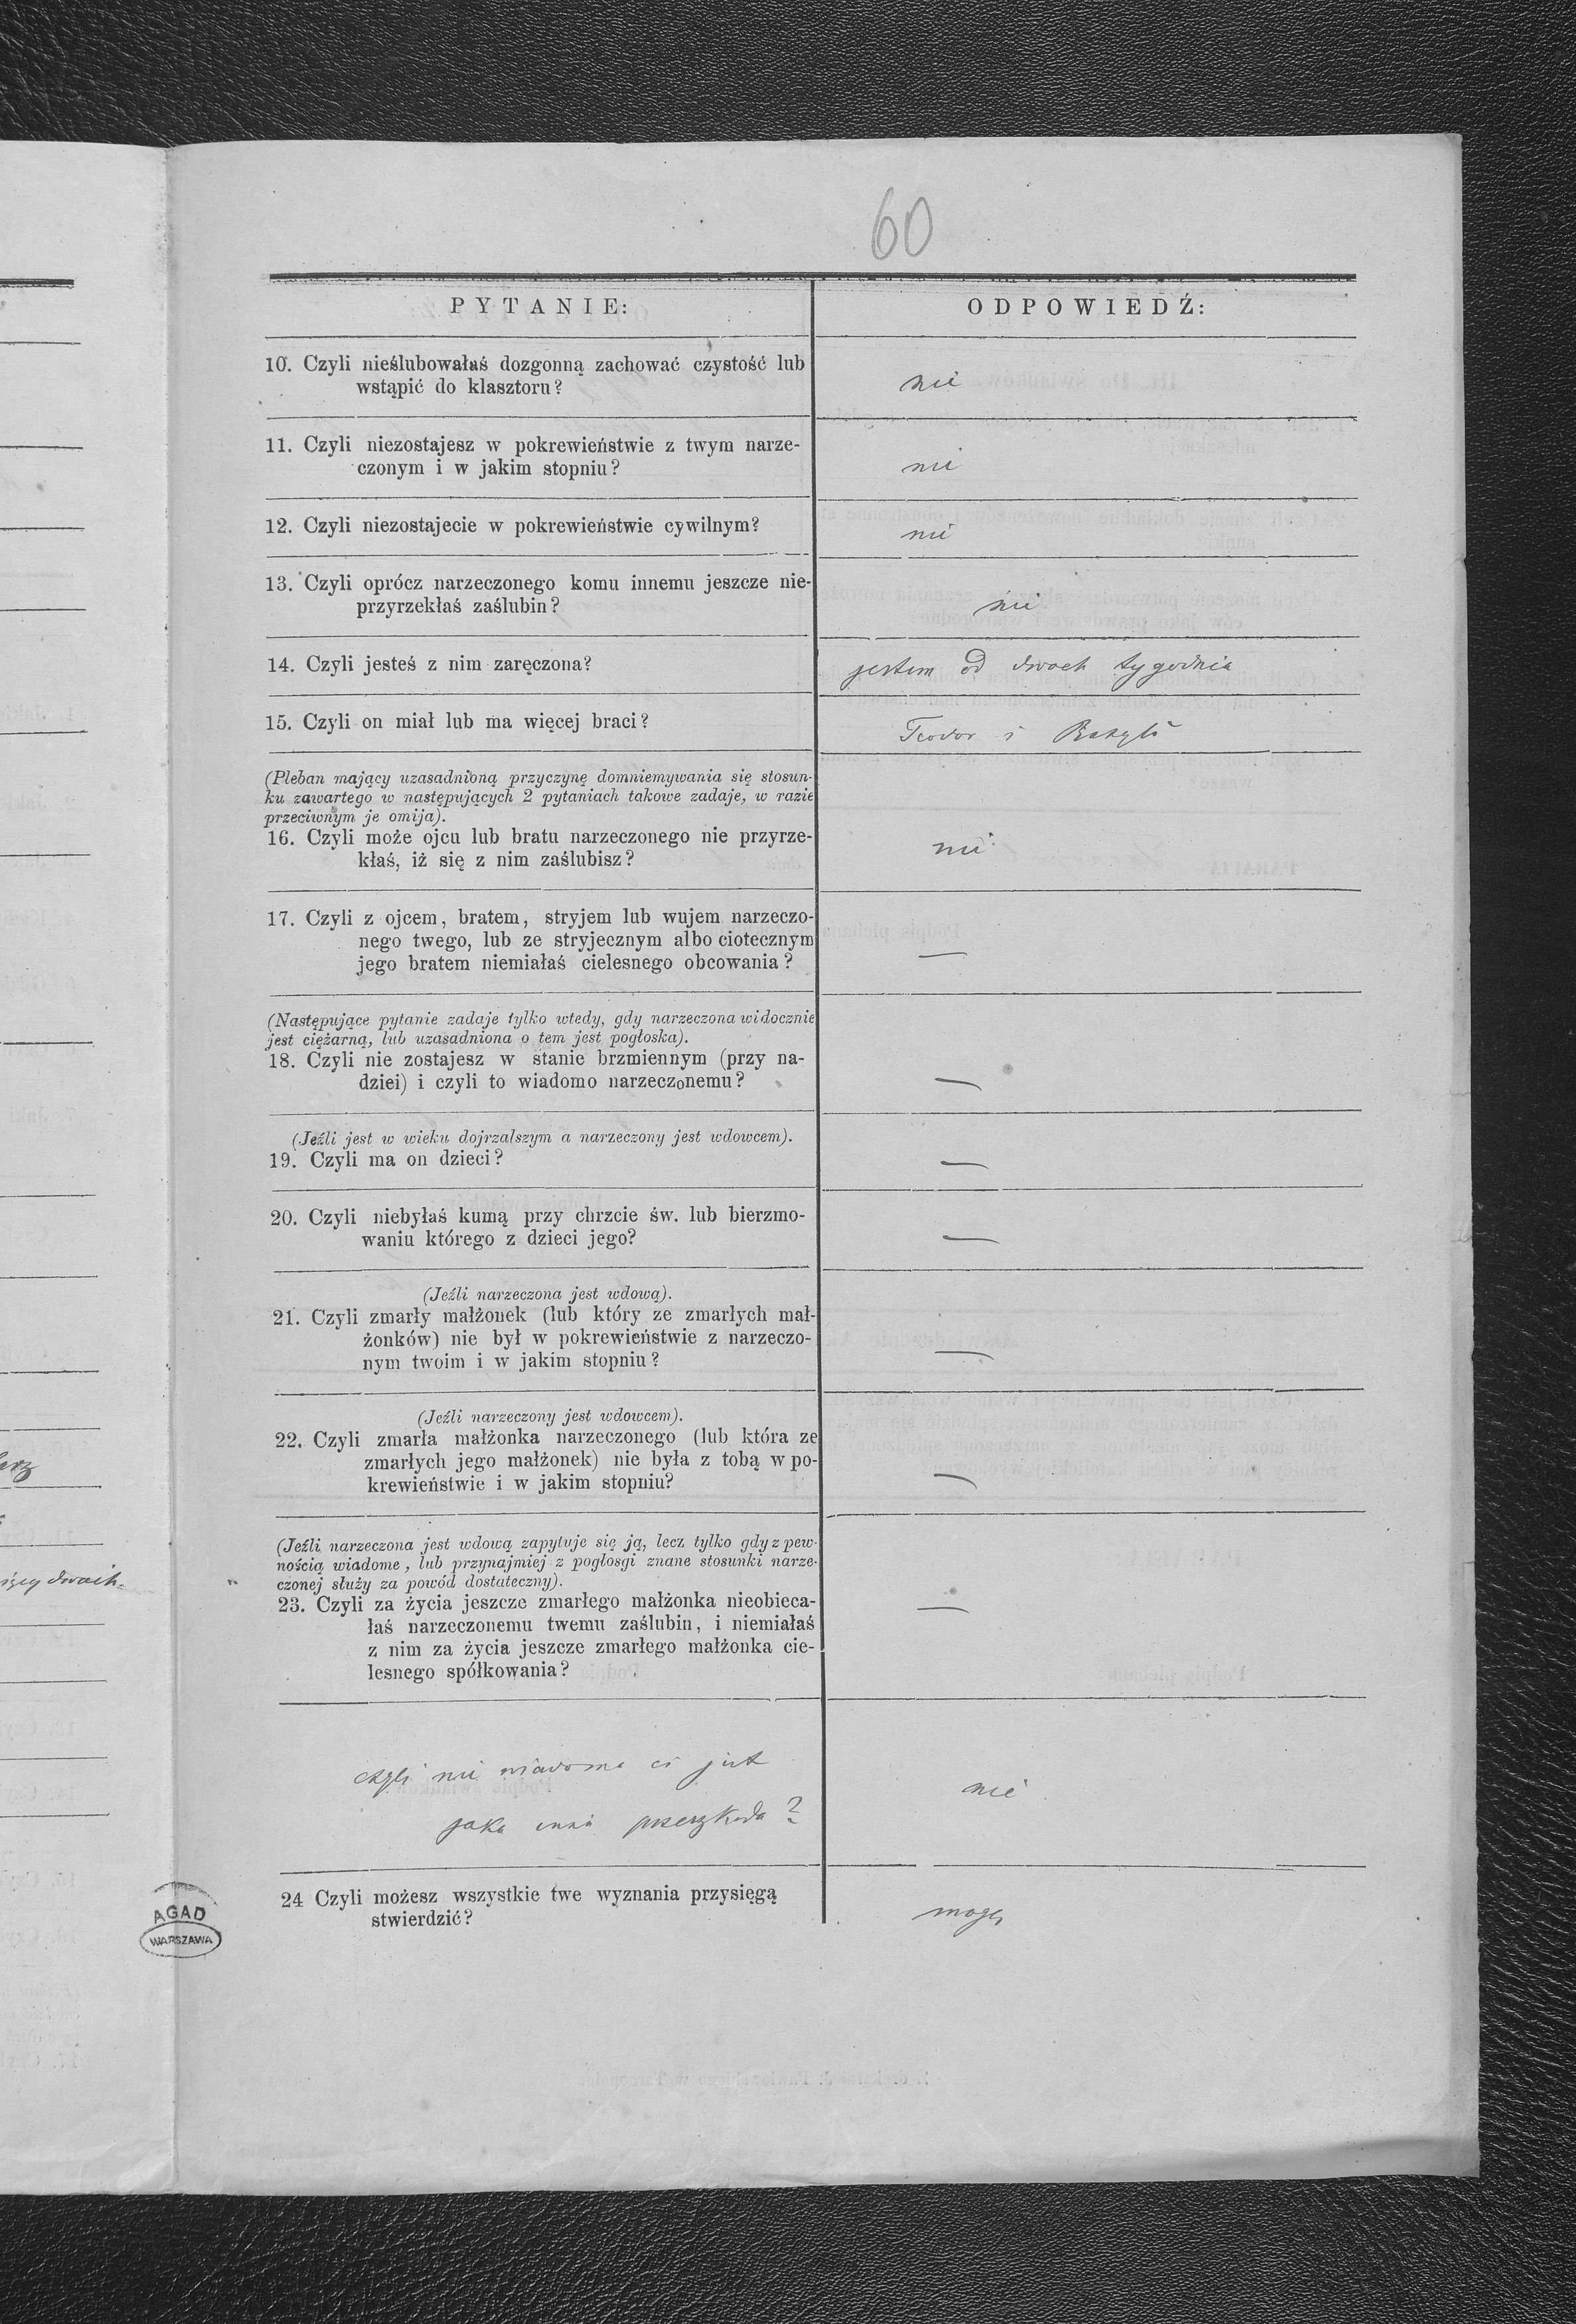 60
PYTANIE:
ODPOWIEDŹ:
10. Czyli nieślubowałaś dozgonną zachować czystość lub
wstąpić do klasztoru?
nie
11. Czyli niezostajesz w pokrewieństwie z twym narze-
czonym i w jakim stopniu?
nie
12. Czyli niezostajecie w pokrewieństwie cywilnym?
nie
13. Czyli oprócz narzeczonego komu innemu jeszcze nie-
przyrzekłaś zaślubin?
nie
14. Czyli jesteś z nim zaręczona?
jestem od dwoch tygodnia
15. Czyli on miał lub ma więcej braci?
Teodor i
(Pleban mający uzasadnioną przyczynę domniemywania się stosun-
ku zawartego w następujących 2 pytaniach takowe zadaje, w razie
przeciwnym je omija).
16. Czyli może ojcu lub bratu narzeczonego nie przyrze-
kłaś, iż się z nim zaślubisz?
nie
17. Czyli z ojcem, bratem, stryjem lub wujem narzeczo-
nego twego, lub ze stryjecznym albo ciotecznym
jego bratem niemiałaś cielesnego obcowania?
—
(Następujące pytanie zadaje tylko wtedy, gdy narzeczona widocznie
jest ciężarną, lub uzasadniona o tem jest pogłoska).
18. Czyli nie zostajesz w stanie brzmiennym (przy na-
dziei) i czyli to wiadomo narzeczonemu?
—
(Jeźli jest w wieku dojrzalszym a narzeczony jest wdowcem).
19. Czyli ma on dzieci?
—
20. Czyli niebyłaś kumą przy chrzcie św. lub bierzmo-
waniu którego z dzieci jego?
—
(Jeźli narzeczona jest wdową).
21. Czyli zmarły małżonek (lub który ze zmarłych mał-
żonków) nie był w pokrewieństwie z narzeczo-
nym twoim i w jakim stopniu?
—
(Jeźli narzeczony jest wdowcem).
22. Czyli zmarła małżonka narzeczonego (lub która ze
zmarłych jego małżonek) nie była z tobą w po-
krewieństwie i w jakim stopniu?
—
(Jeźli narzeczona jest wdową zapytuje się ją, lecz tylko gdy z pew-
nością wiadome, lub przynajmiej z pogłosgi znane stosunki narze-
czonej służy za powód dostateczny).
23. Czyli za życia jeszcze zmarłego małżonka nieobieca-
łaś narzeczonemu twemu zaślubin, i niemiałaś
z nim za życia jeszcze zmarłego małżonka cie-
lesnego spółkowania?
—
czyli nie wiadoma ci jest
jaka inna przeszkoda?
nie
24 Czyli możesz wszystkie twe wyznania przysięgą
stwierdzić?
mogę
AGAD
WARSZAWA